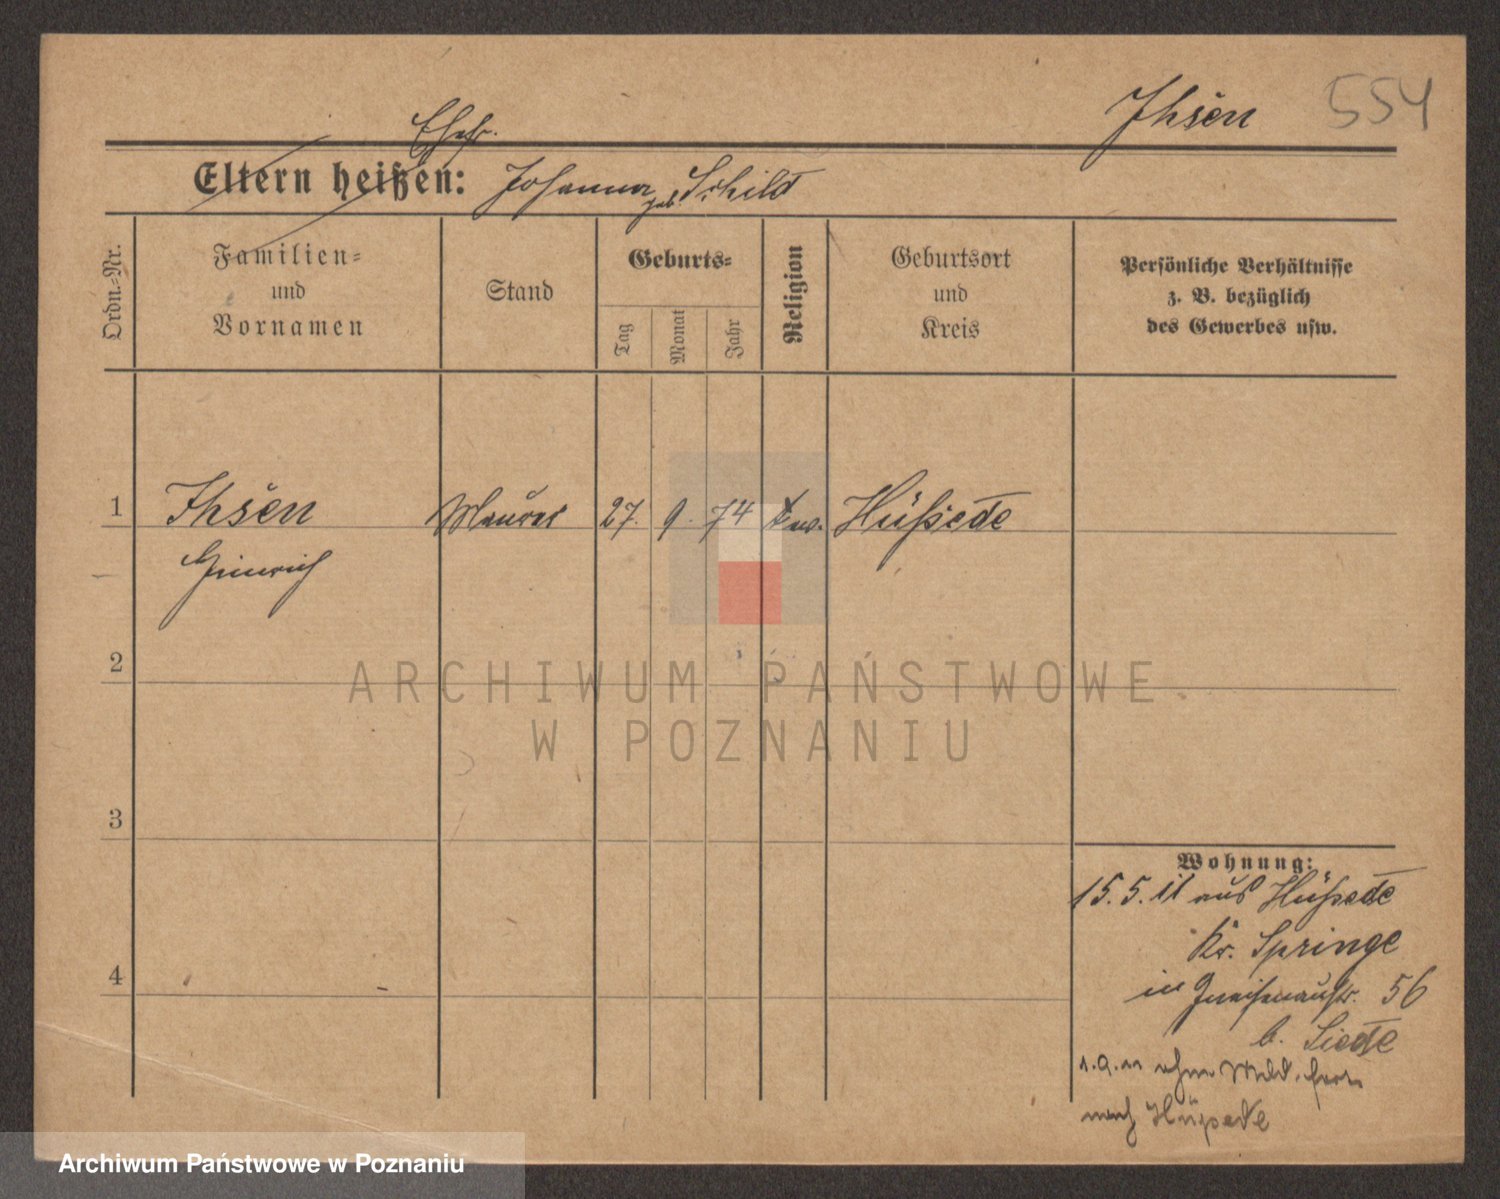 Ihsen 554
Ehefr.
Eltern heißen: Johanna geb. Schild
Ordn.-Nr.
Familien-
und
Vornamen
Stand
Geburts-
Tag
Monat
Jahr
Religion
Geburtsort
und
Kreis
Persönliche Verhältnisse
z. B. bezüglich
des Gewerbes usw.
1 Ihsen Maurer 27. 9. 74 ew. Hüpede
Heinrich
2
3
4
Wohnung:
15.5.11 aus Hüpede
Kr. Springe
in Gneisenaustr. 56
b. Siede
1.9.11 ohne Meld. fort
nach Hüpede
ARCHIWUM PAŃSTWOWE
W POZNANIU
Archiwum Państwowe w Poznaniu